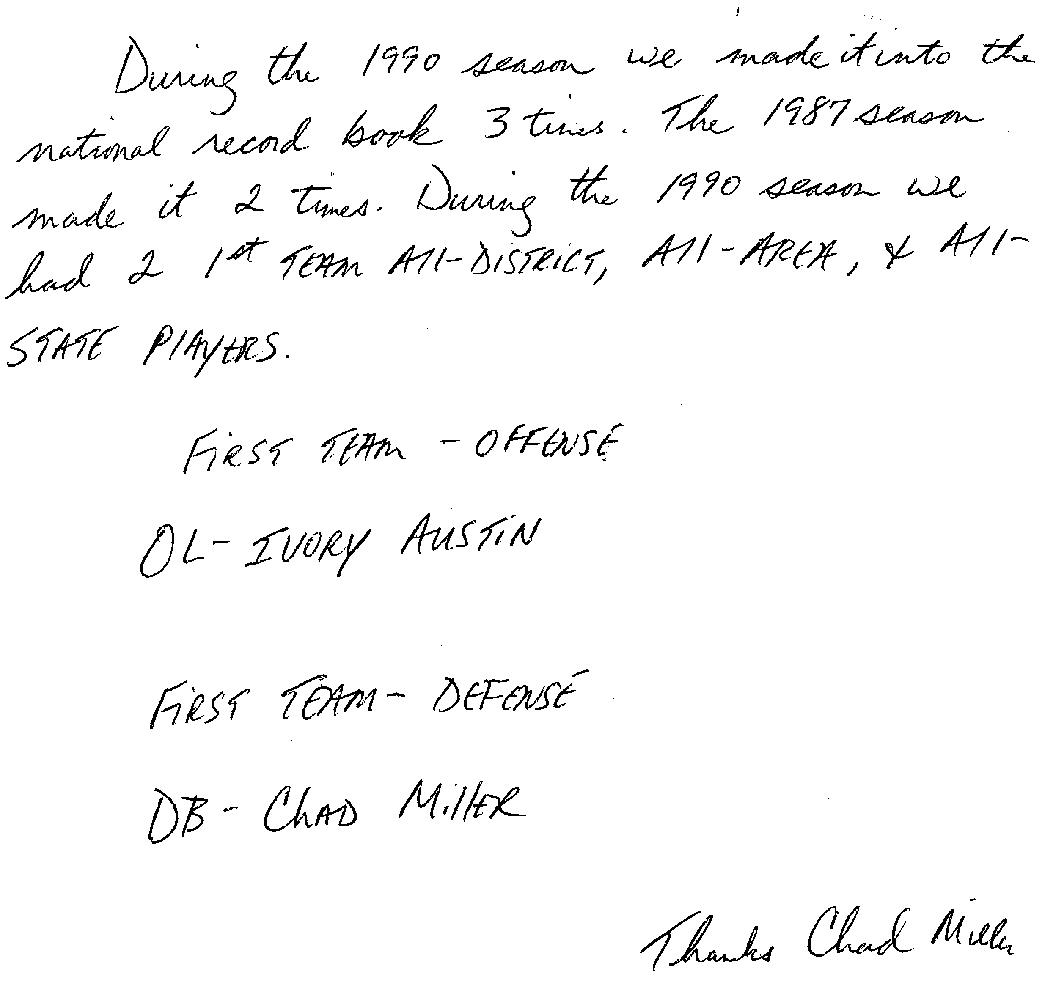 During the 1990 season we made it into the
national record book 3 times. The 1987 season
made it 2 times. During the 1990 season we
had 2 1st TEAM All-DISTRICT, All-AREA, & All-
STATE PlAyERS.
FiRST TEAM - OFFENSE
OL- IVORY AUSTiN
FiRST TEAM - DEFENSE
DB - ChAD MillER
Thanks Chad Miller